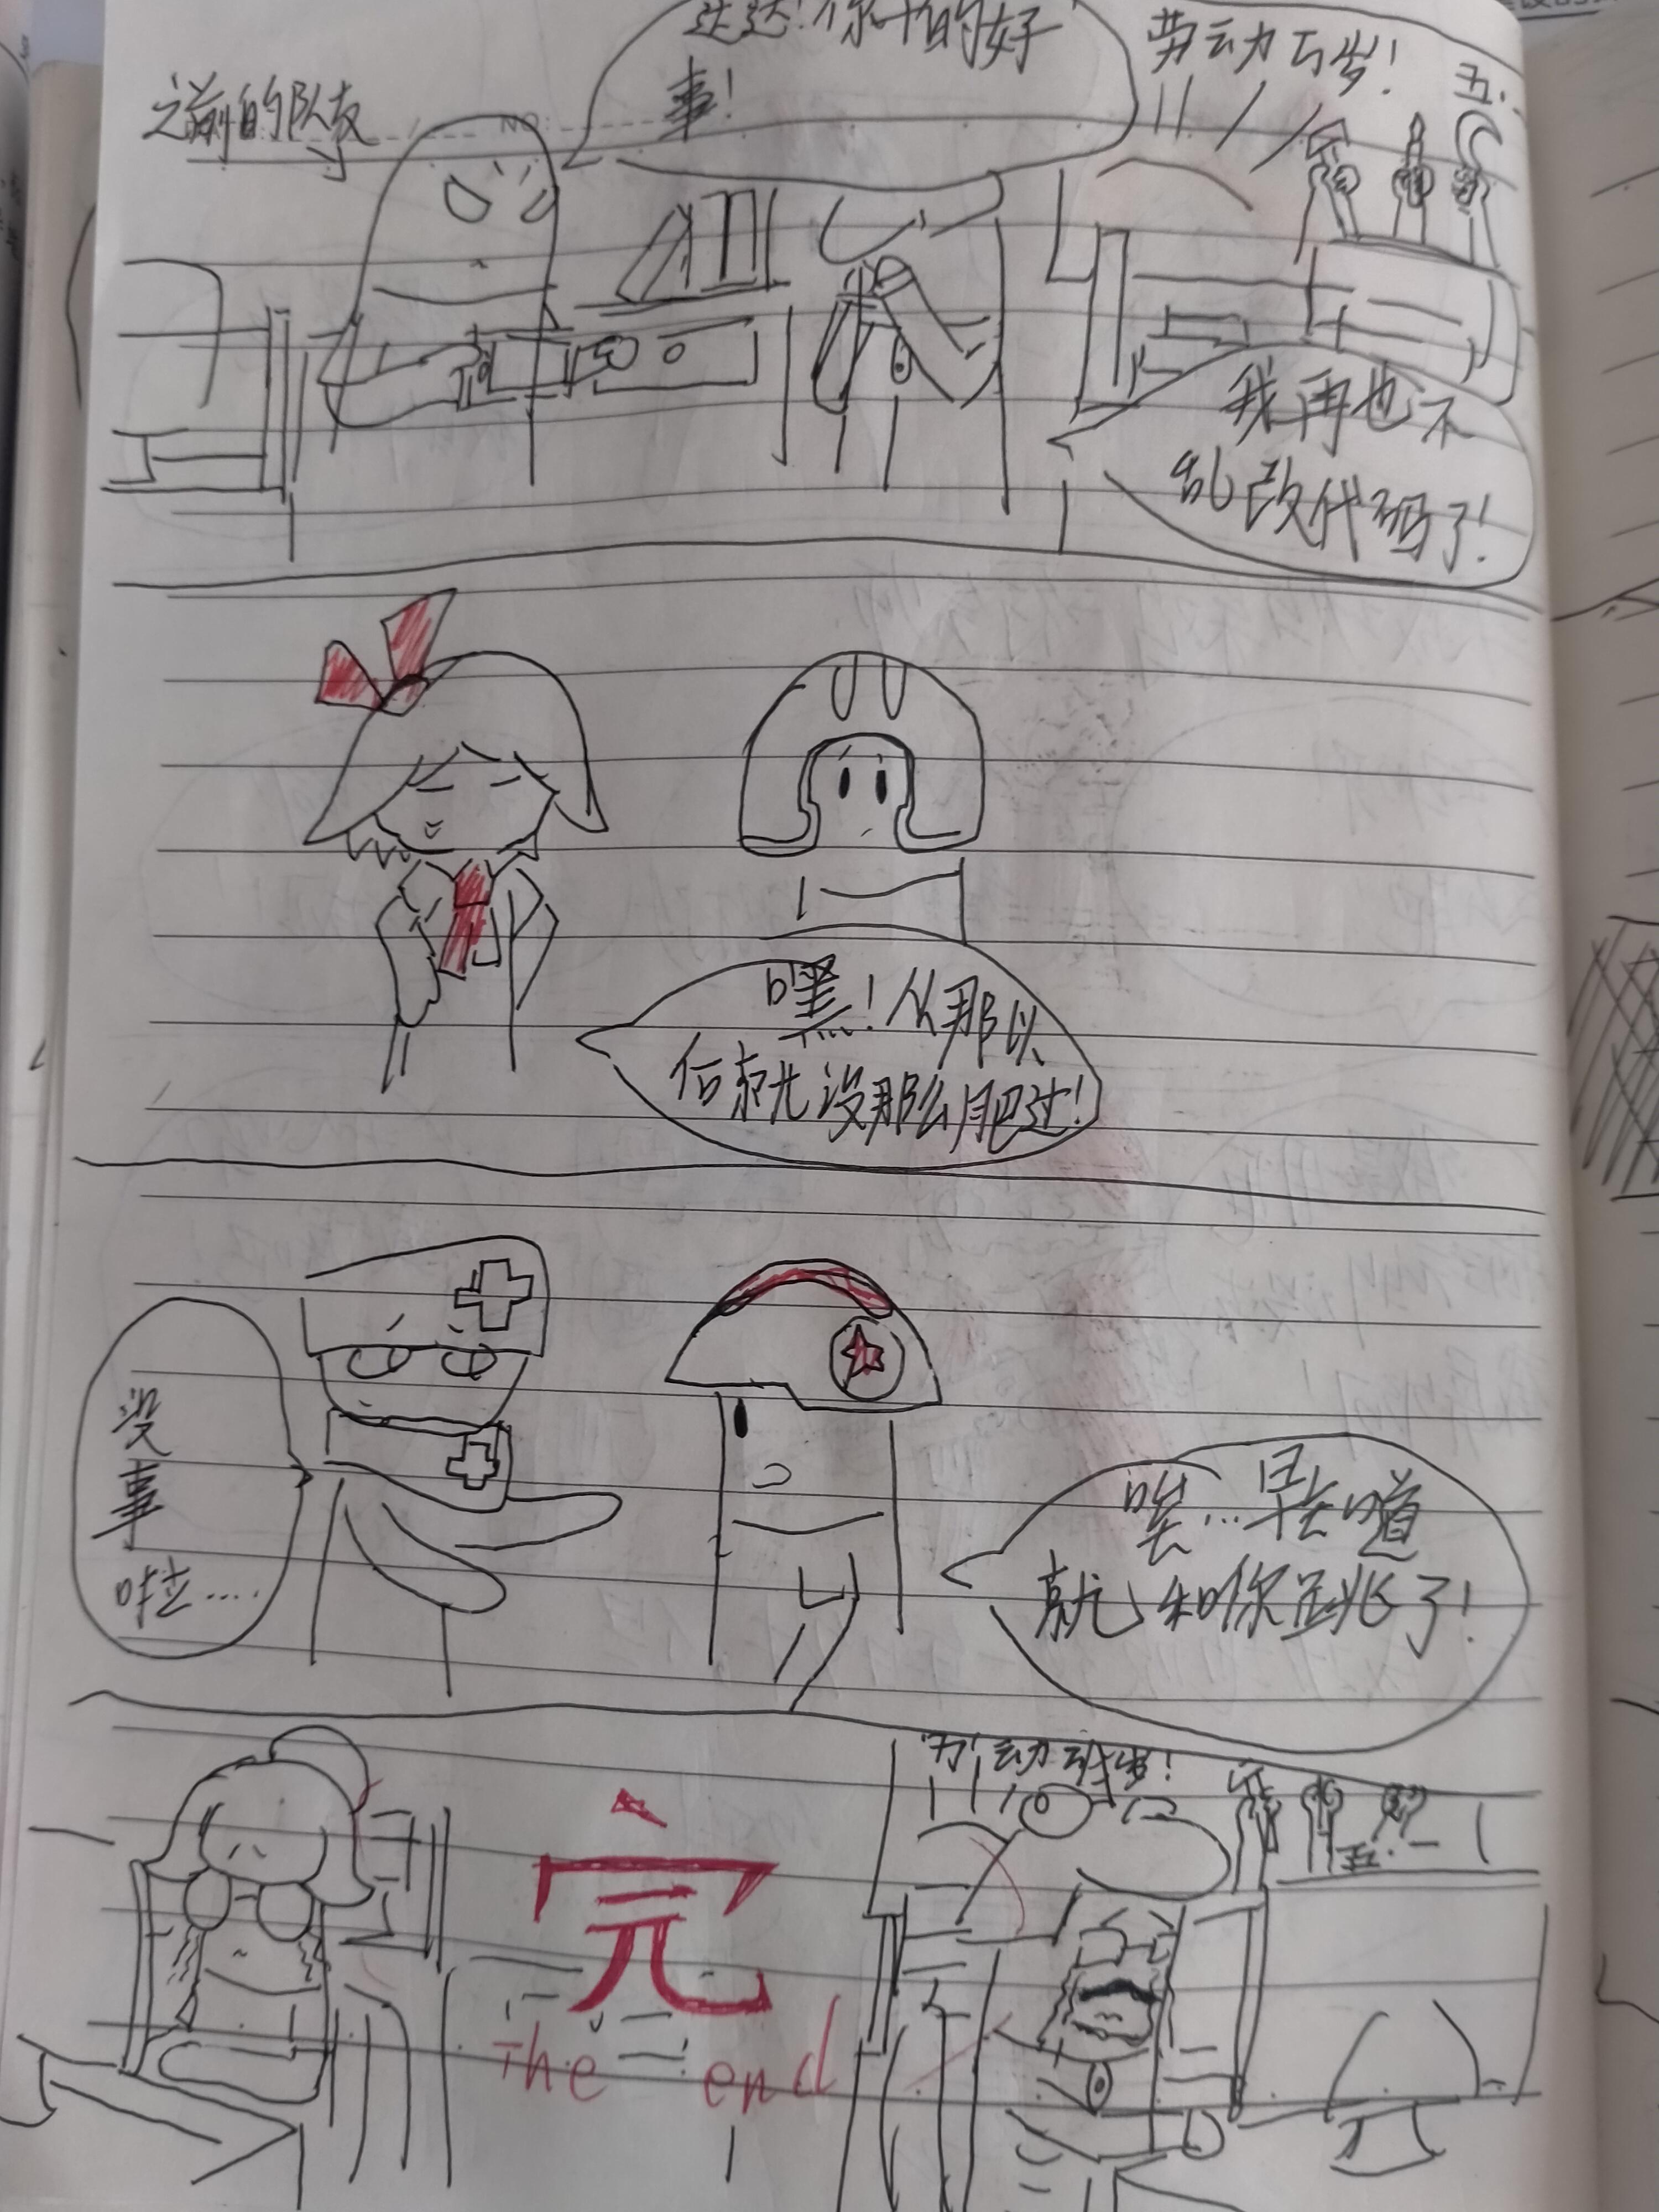 之前的队友
达达！你干的好
事！
劳动万岁！
五.一
NO.
我再也不
乱改代码了！
嘿！从那以
后就没那么肥过！
没
事
啦....
唉...早知道
就和你跳了！
劳动万岁！
五.一
完
The end